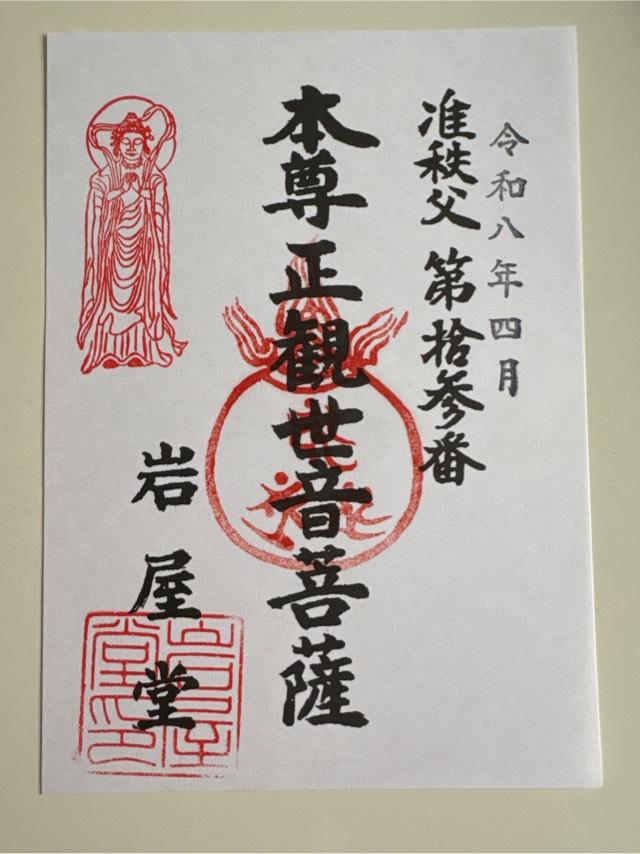 令和八年四月
准秩父 第拾参番
本尊正観世音菩薩
岩屋堂
岩屋堂印